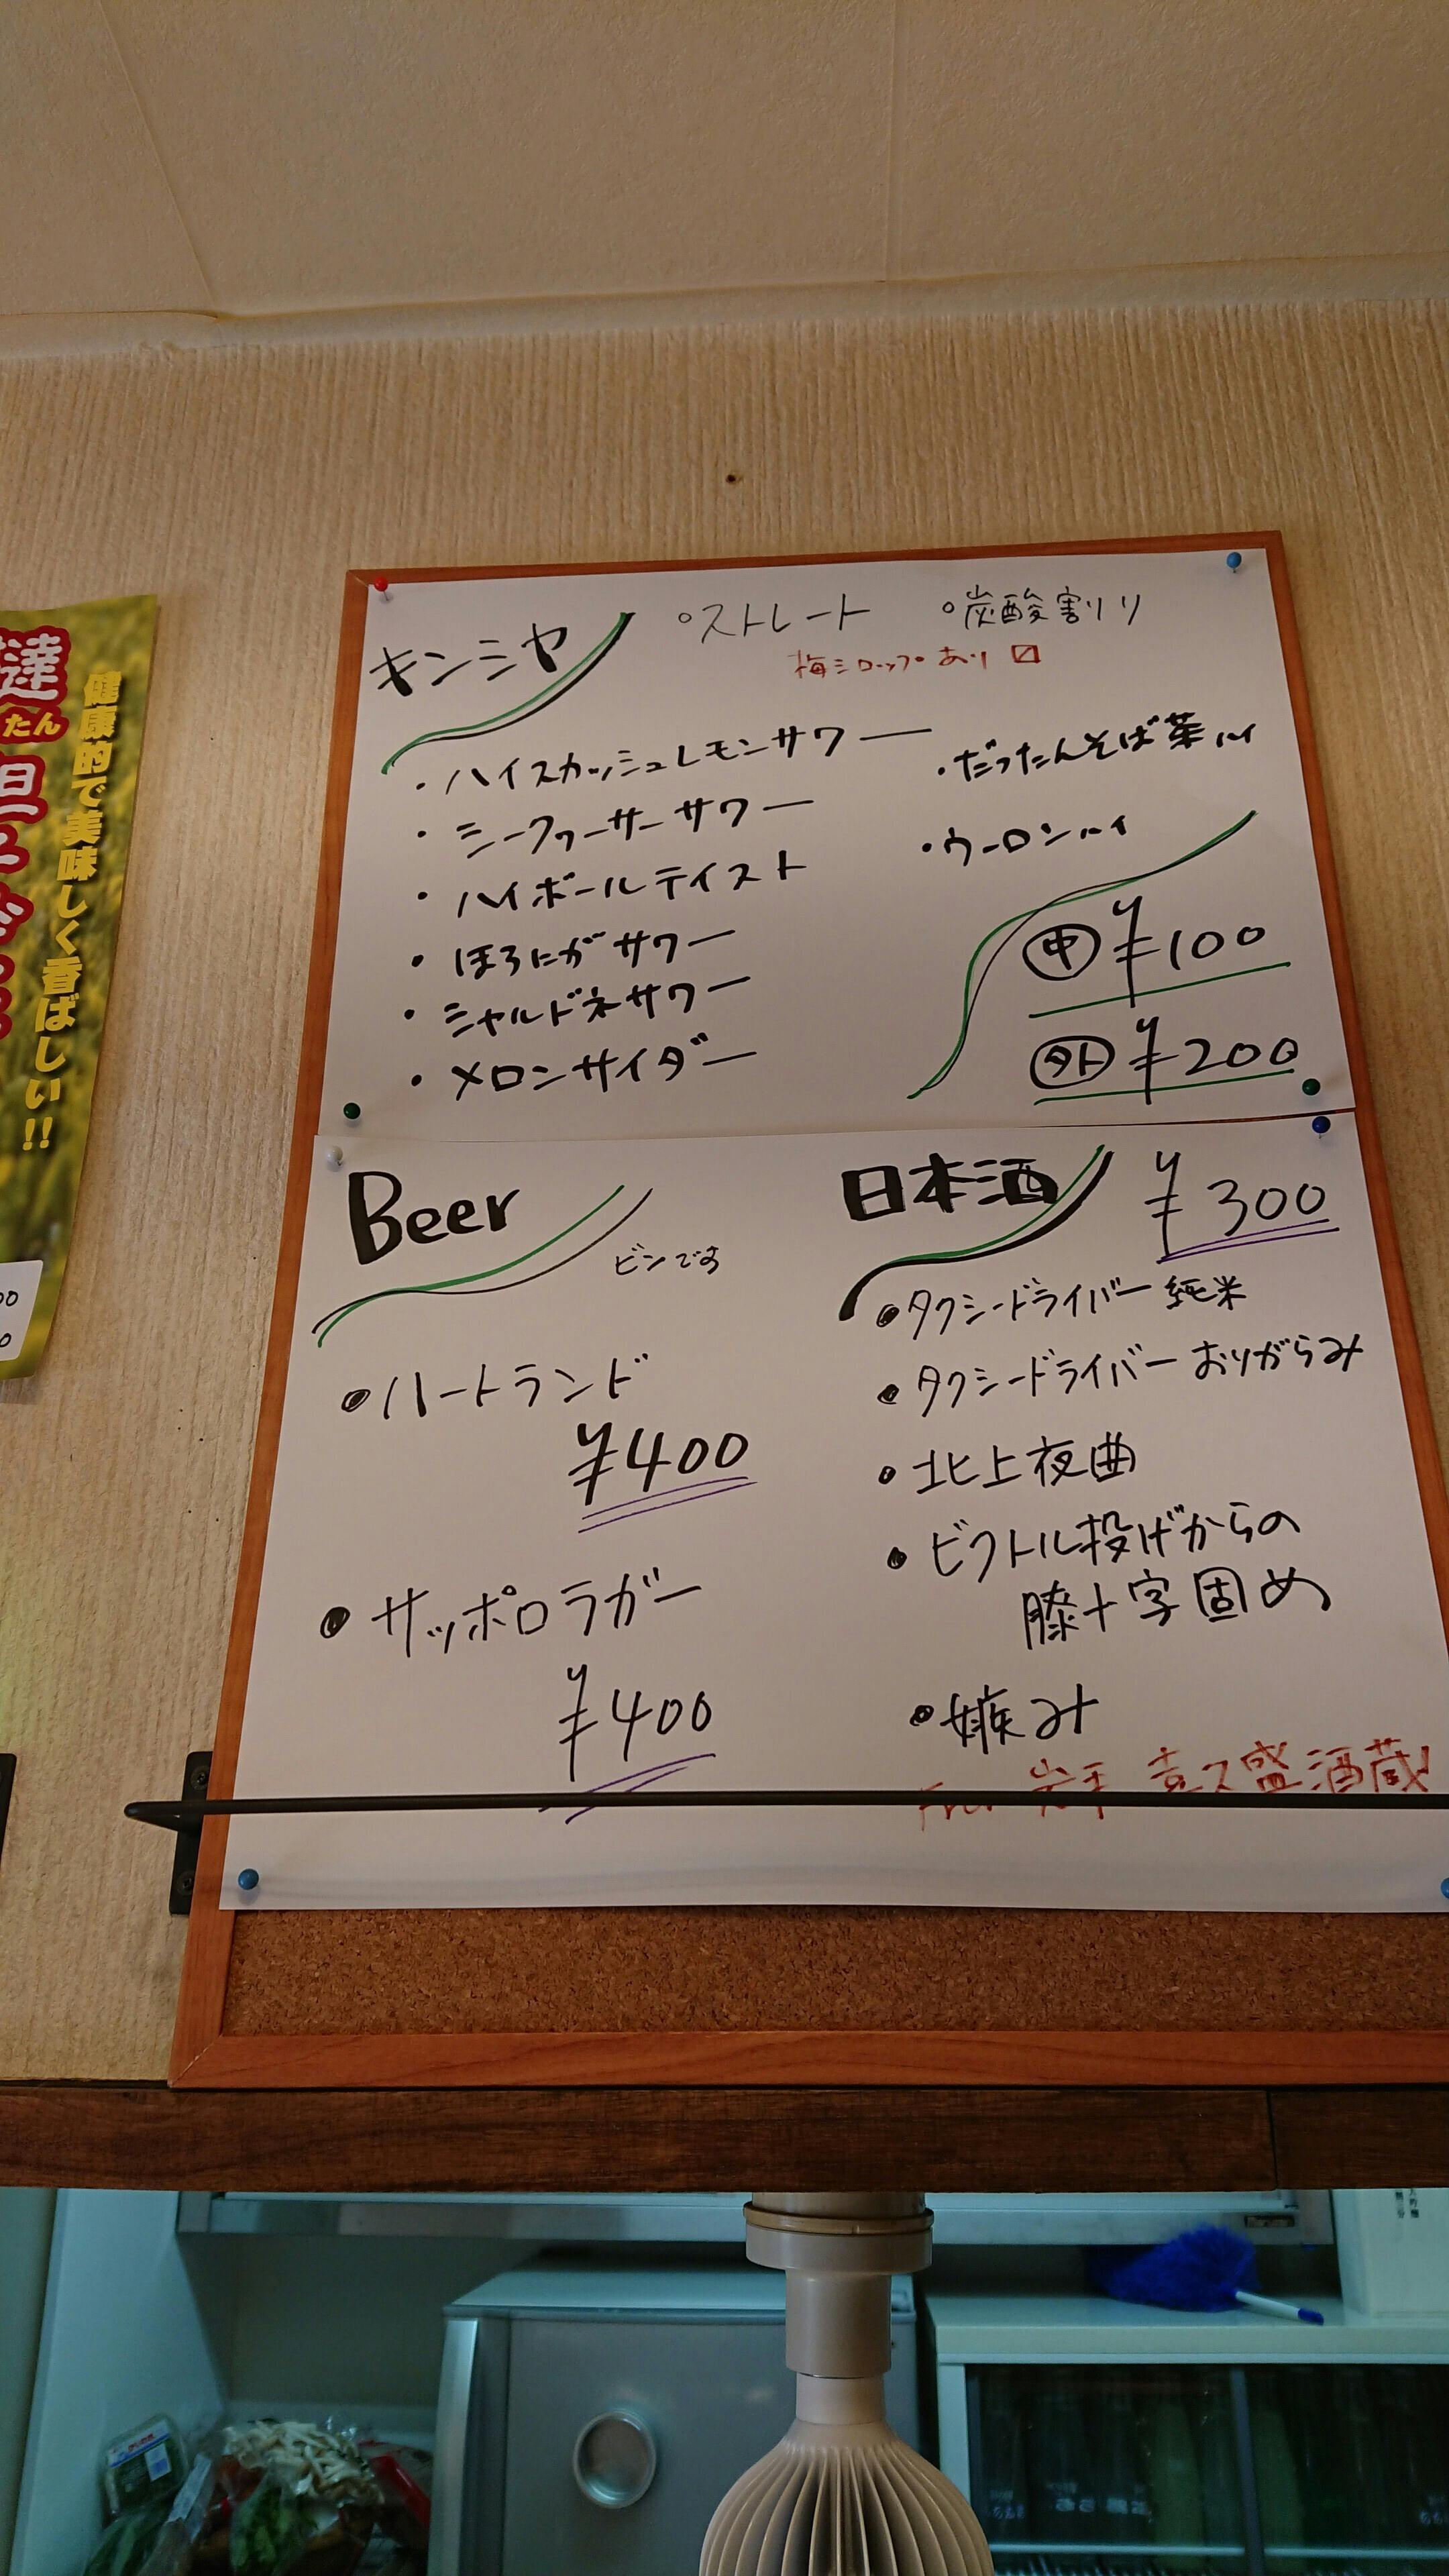 キンミヤ
・ストレート ・炭酸割り
梅シロップあり
・ハイスカッシュレモンサワー
・シークヮーサーサワー
・ハイボールテイスト
・ほろにがサワー
・シャルドネサワー
・メロンサイダー
・だったんそば茶ハイ
・ウーロンハイ
中 ¥100
外 ¥200
Beer
ビンです
・ハートランド
¥400
・サッポロラガー
¥400
日本酒 ¥300
・タクシードライバー 純米
・タクシードライバー おりがらみ
・北上夜曲
・ビクトル投げからの
膝十字固め
・嫉み
岩手 喜久盛酒蔵
健康的で美味しく香ばしい!!
たん